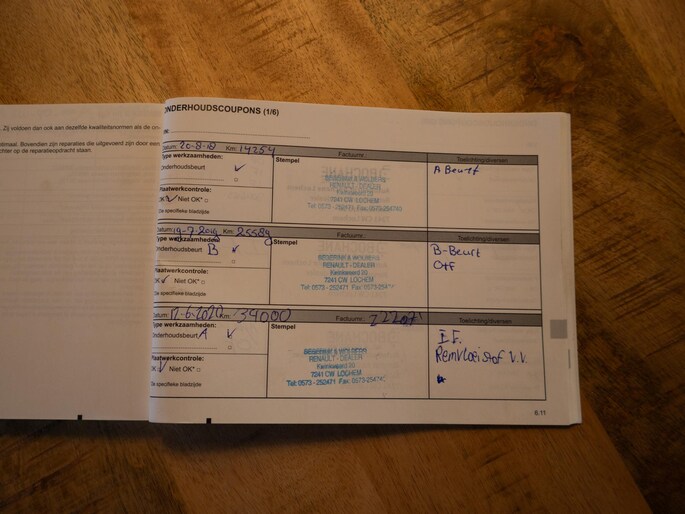 Zij voldoen dan ook aan dezelfde kwaliteitsnormen als de
Bovendien zijn reparaties die uitgevoerd zijn door een
op de reparatieopdracht staan.
ONDERHOUDSCOUPONS (1/6)
Datum: 20-8-18 Km: 14254 Factuurnr.: Toelichting/diversen
Type werkzaamheden: Stempel A Beurt
Onderhoudsbeurt ✓
BOCHANE
RENAULT - DEALER
7241 CW LOCHEM
Plaatwerkcontrole:
OK ✓ Niet OK* □
Zie specifieke bladzijde
Datum: 19-7-2019 Km: 25589 Factuurnr.: Toelichting/diversen
Type werkzaamheden: Stempel B-Beurt
Onderhoudsbeurt B ✓ OTF
RENAULT - DEALER
Kwinkweerd 20
7241 CW LOCHEM
Tel: 0573 - 252471 Fax: 0573-
Plaatwerkcontrole:
OK ✓ Niet OK* □
Zie specifieke bladzijde
Datum: 17-6-2020 Km: 34000 Factuurnr.: Toelichting/diversen
Type werkzaamheden: Stempel
Onderhoudsbeurt A ✓ Remvloeistof v.v.
RENAULT - DEALER
Kwinkweerd 20
7241 CW LOCHEM
Tel: 0573 - 252471 Fax: 0573-
Plaatwerkcontrole:
OK ✓ Niet OK* □
Zie specifieke bladzijde
6.11